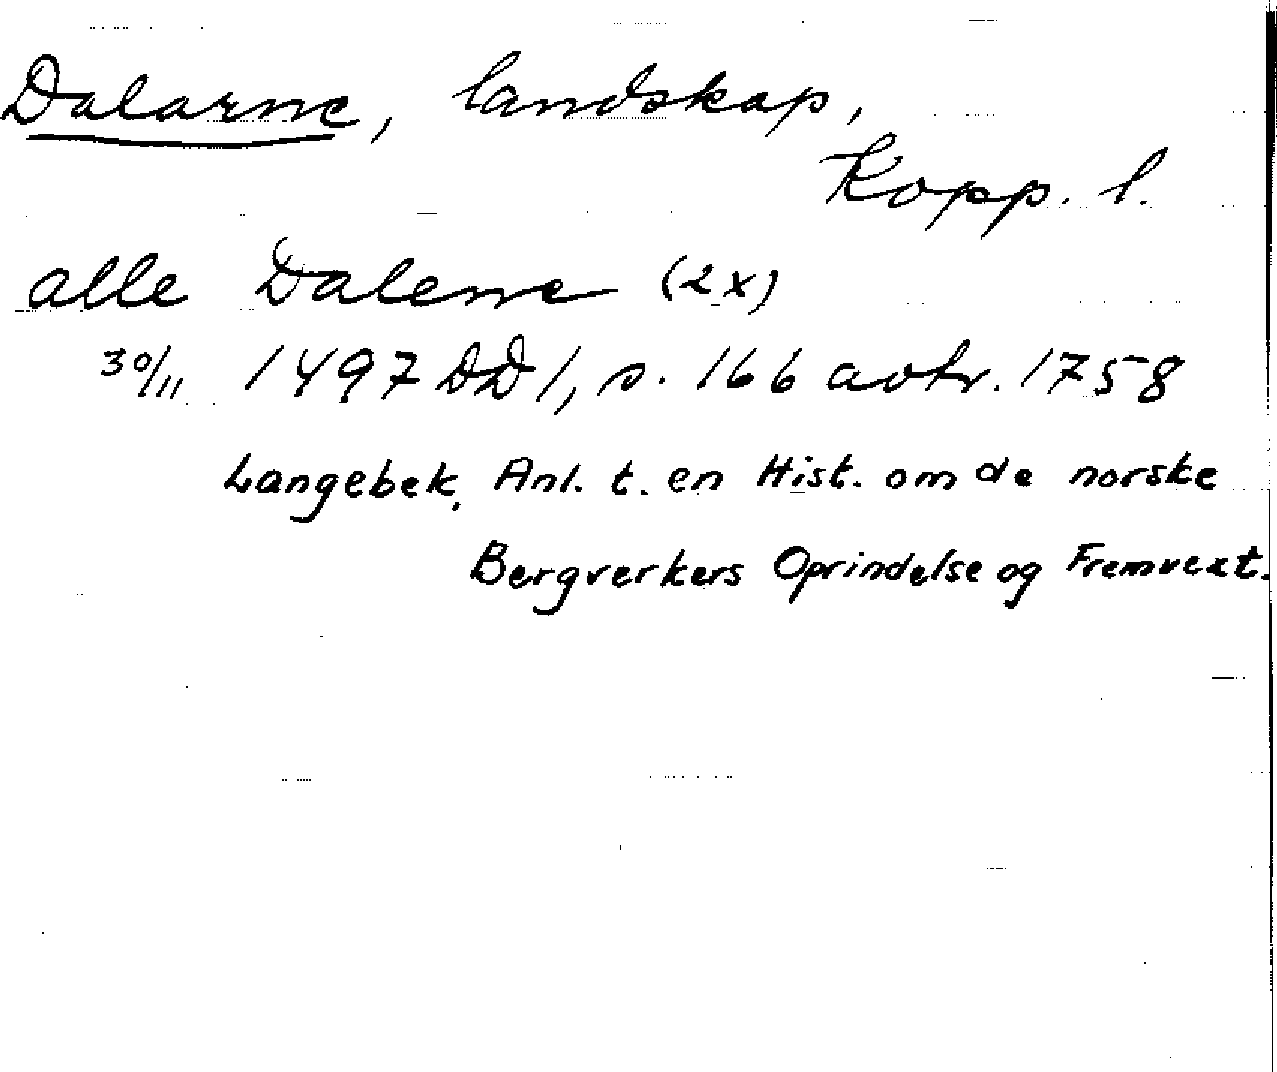 Dalarne, landskap,
Kopp. l.
alle Dalene (2 x)
30/11 1497 DD 1, s. 166 avtr. 1758
Langebek, Anl. t. en Hist. om de norske
Bergverkers Oprindelse og Fremvext.